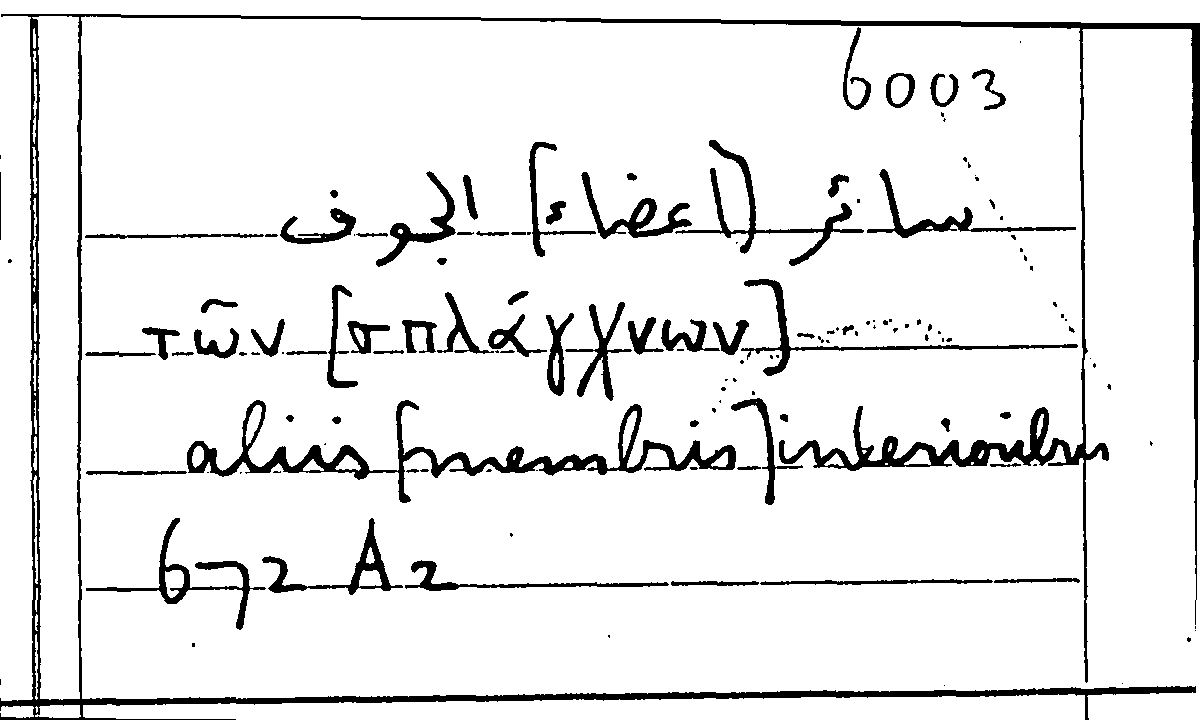 6003
سائر (اعضاء] الجوف
τῶν [σπλάγχνων]
aliis [membris] interioribus
672 A2